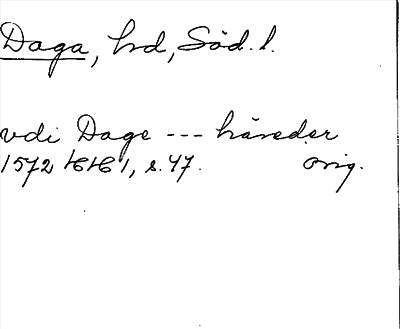 Daga, hd, Söd. l.
vdi Dage --- häreder
1572 HH 1, s. 47. orig.